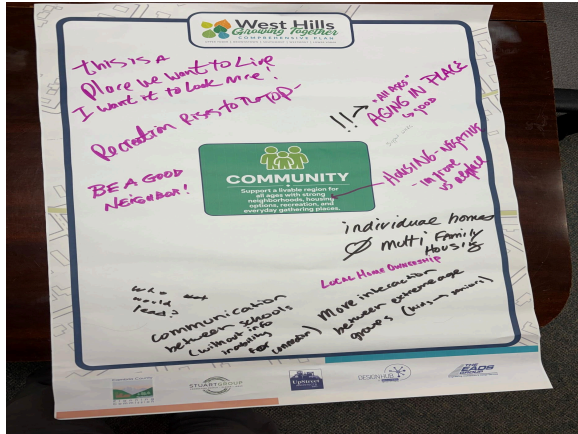 West Hills
Growing Together
COMPREHENSIVE PLAN
THIS IS A
Place we want to Live
I want it to Look nice!
Recreation Rises to the Top-
BE A GOOD
NEIGHBOR!
!!
"All AGES"
AGING IN PLACE
good
COMMUNITY
Support a livable region for
all ages with strong
neighborhoods, housing
options, recreation, and
everyday gathering places.
HOUSING-NEGATIVE
- improve
vs replace
individual homes
multi Family
Housing
Local Home Ownership
who
would
lead?
communication
between schools
(without info
inability
for connection)
More interaction
between extreme age
groups (kids seniors)
STUARTGROUP
UpStreet
DESIGN HUB
THE
EADS
GROUP